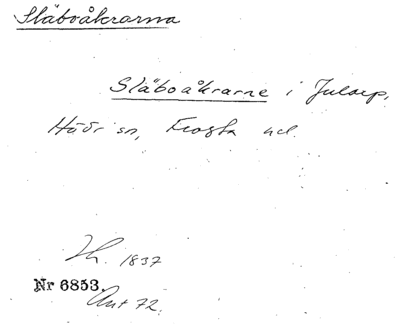 Släboåkrarna
Släboåkrarne i Julaup,
Höörs sn, Frosta hd.
Lh. 1837
Nr 6853.
Ant 72.